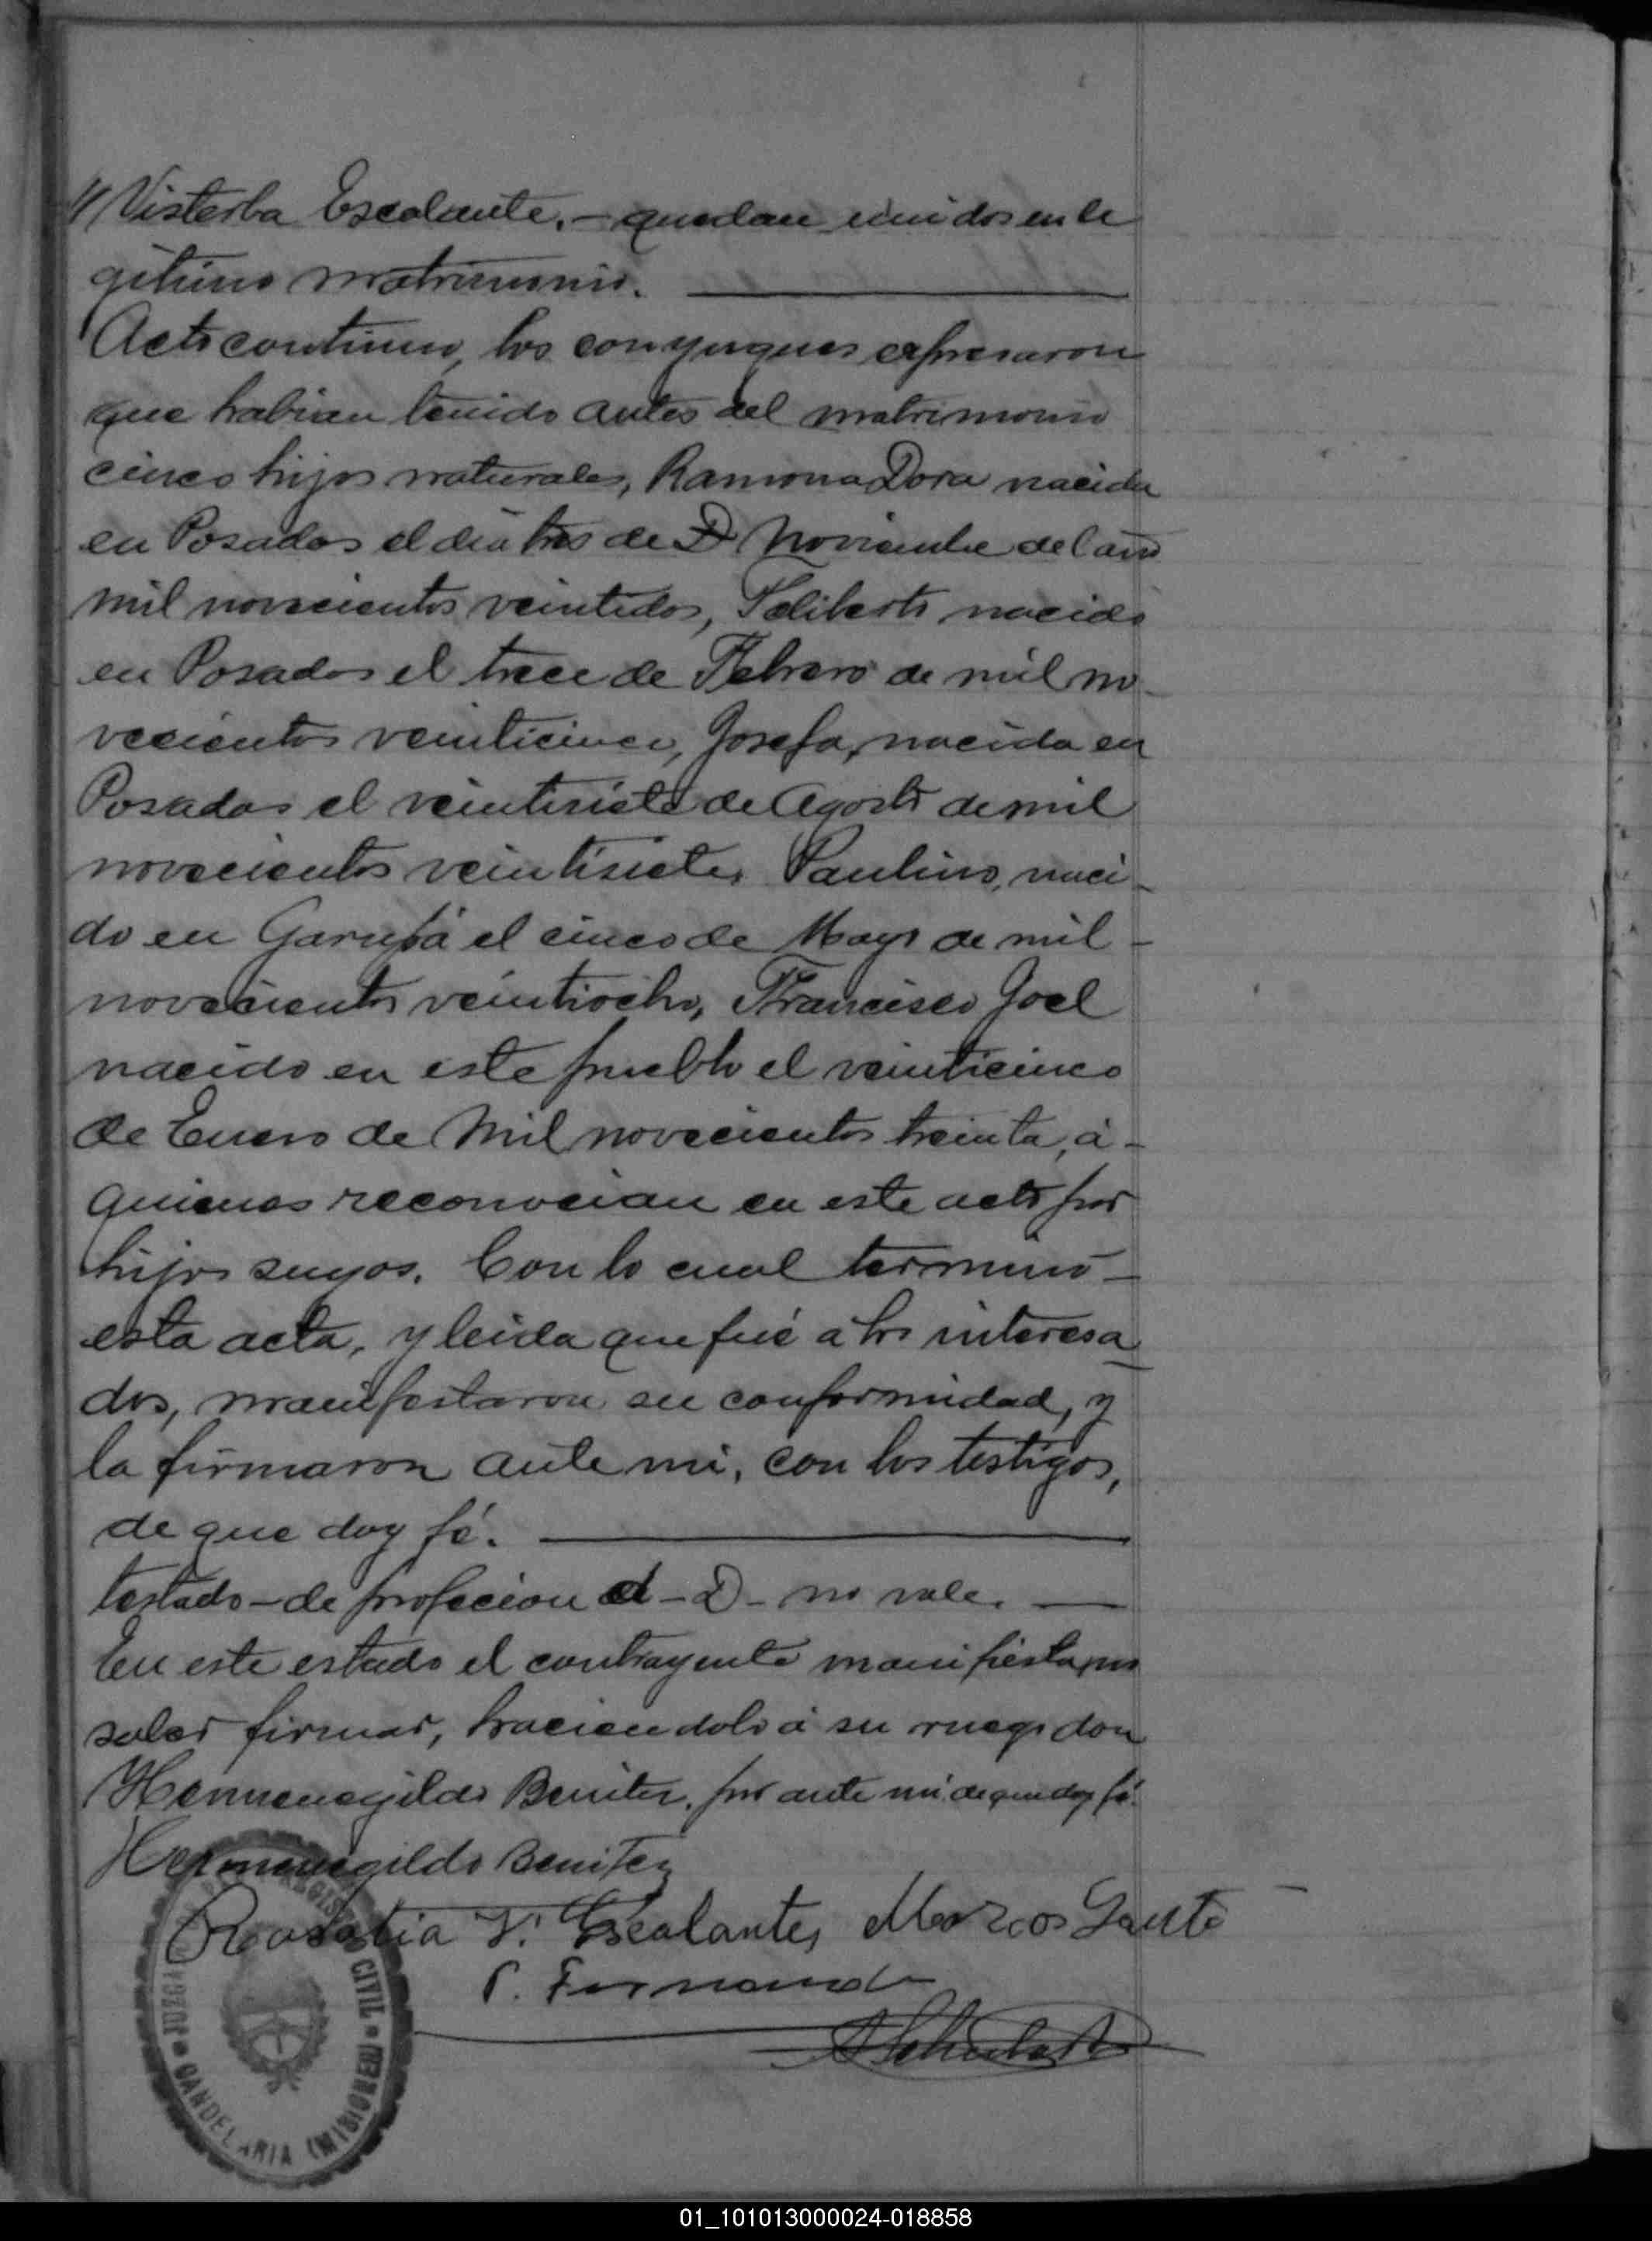 // Visterba Escalante. - quedan unidos en le
gitimo matrimonio.
Acto continuo, los conyugues expresaron
que habian tenido antes del matrimonio
cinco hijos naturales, Ramona Dora nacida
en Posadas el dia tres de D Noviembre del año
mil novecientos veintidos, Feliberto nacido
en Posadas el trece de Febrero de mil no-
vecientos veinticinco, Josefa, nacida en
Posadas el veintisiete de Agosto de mil
novecientos veintisiete, Paulino, naci-
do en Garupá el cinco de Mayo de mil -
novecientos veintiocho, Francisco Joel
nacido en este pueblo el veinticinco
de Enero de Mil novecientos treinta, á -
quienes reconocian en este acto por
hijos suyos. Con lo cual terminó -
esta acta, y leida que fué a los interesa
dos, manifestaron su conformidad, y
la firmaron ante mi, con los testigos,
de que doy fé.
testado - de profecion el - D - no vale.
En este estado el contrayente manifiesta no
saber firmar, haciendolo á su ruego don
Hermenegildo Benitez, por ante mi de que doy fé.
Hermenegildo Benitez
Rosalia V. Escalante, Marcos Gauto
P. Fernand
JUZGA REGIS CIVIL
CANDELARIA (MISIONES)
01_101013000024-018858